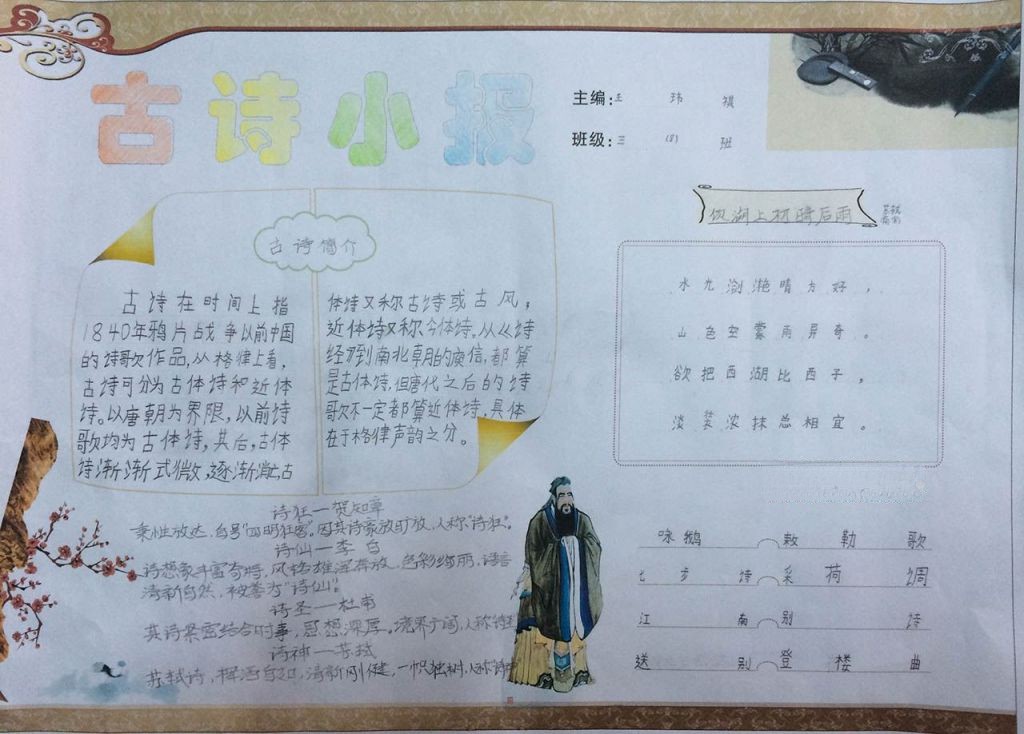 古诗小报
主编:王 玮 祺
班级:三 (8) 班
古诗简介
古诗在时间上指
1840年鸦片战争以前中国
的诗歌作品,从格律上看,
古诗可分为古体诗和近体
诗。以唐朝为界限,以前诗
歌均为古体诗,其后,古体
诗渐渐式微,逐渐消亡,古
体诗又称古诗或古风,
近体诗又称今体诗。从
诗
经到南北朝的庾信,都算
是古体诗,但唐代之后的诗
歌不一定都算近体诗,具体
在于格律声韵之分。
饮湖上初晴后雨
苏轼
水光潋滟晴方好,
山色空蒙雨异奇。
欲把西湖比西子,
淡装浓抹总相宜。
诗狂—贺知章
秉性放达,自号“四明狂客”。因其诗豪放旷放,人称“诗狂”。
诗仙—李白
诗想象丰富奇特,风格雄浑奔放,色彩绚丽,语言
清新自然,被誉为“诗仙”。
诗圣—杜甫
其诗紧密结合时事,思想深厚。境界广阔,人称诗圣
诗神—苏轼
苏轼诗,挥洒自如,清新刚健,一帜独树,人称诗神
咏鹅 敕勒歌
七步诗 采荷调
江南 别诗
送别 登楼曲